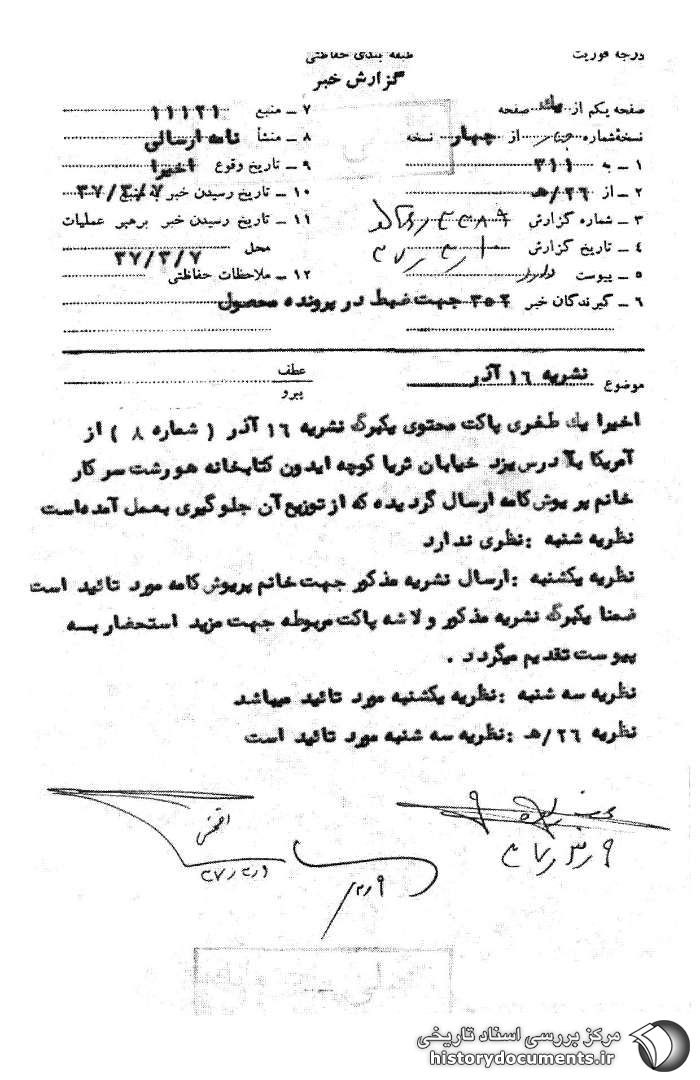 درجه فوریت
طبقه بندی حفاظتی
گزارش خبر
صفحه یکم از یک صفحه
نسخه شماره چهار از چهار نسخه
۱ ــ به ۳۱۱
۲ ــ از ۲۶/هـ
۳ ــ شماره گزارش
۴ ــ تاریخ گزارش
۵ ــ پیوست دارد
۶ ــ گیرندگان خبر ۳۵۲ جهت ضبط در پرونده محصول
۷ ــ منبع ۱۱۱۲۱
۸ ــ منشأ نامه ارسالی
۹ ــ تاریخ وقوع اخیرا
۱۰ ــ تاریخ رسیدن خبر به منبع ۳۷/۳/۷
۱۱ ــ تاریخ رسیدن خبر برهبر عملیات
محل ۳۷/۳/۷
۱۲ ــ ملاحظات حفاظتی
موضوع نشریه ۱۶ آذر
عطف
پیرو
اخیرا یک طغری پاکت محتوی یکبرگ نشریه ۱۶ آذر ( شماره ۸ ) از
آمریکا بآدرس یزد خیابان ثریا کوچه ایدون کتابخانه هورشت سرکار
خانم پریوش کامه ارسال گردیده که از توزیع آن جلوگیری بعمل آمده است
نظریه شنبه : نظری ندارد
نظریه یکشنبه : ارسال نشریه مذکور جهت خانم پریوش کامه مورد تائید است
ضمنا یکبرگ نشریه مذکور و لاشه پاکت مربوطه جهت مزید استحضار بسه
پیوست تقدیم میگردد .
نظریه سه شنبه : نظریه یکشنبه مورد تائید میباشد
نظریه ۲۶/هـ : نظریه سه شنبه مورد تائید است
۹ر۳ر۳۷
مرکز بررسی اسناد تاریخی
historydocuments.ir